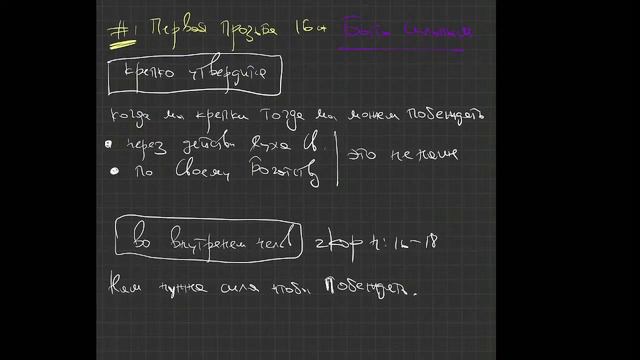 #1 Первая Прозьба 16а Быть Сильным
крепко утвердится
когда мы крепки тогда мы можем побеждать
• через действи Духа Св.
• по Своему Богатству это не наше
во внутренем чел 2кор 4:16-18
Нам нужна сила чтобы Побеждать.